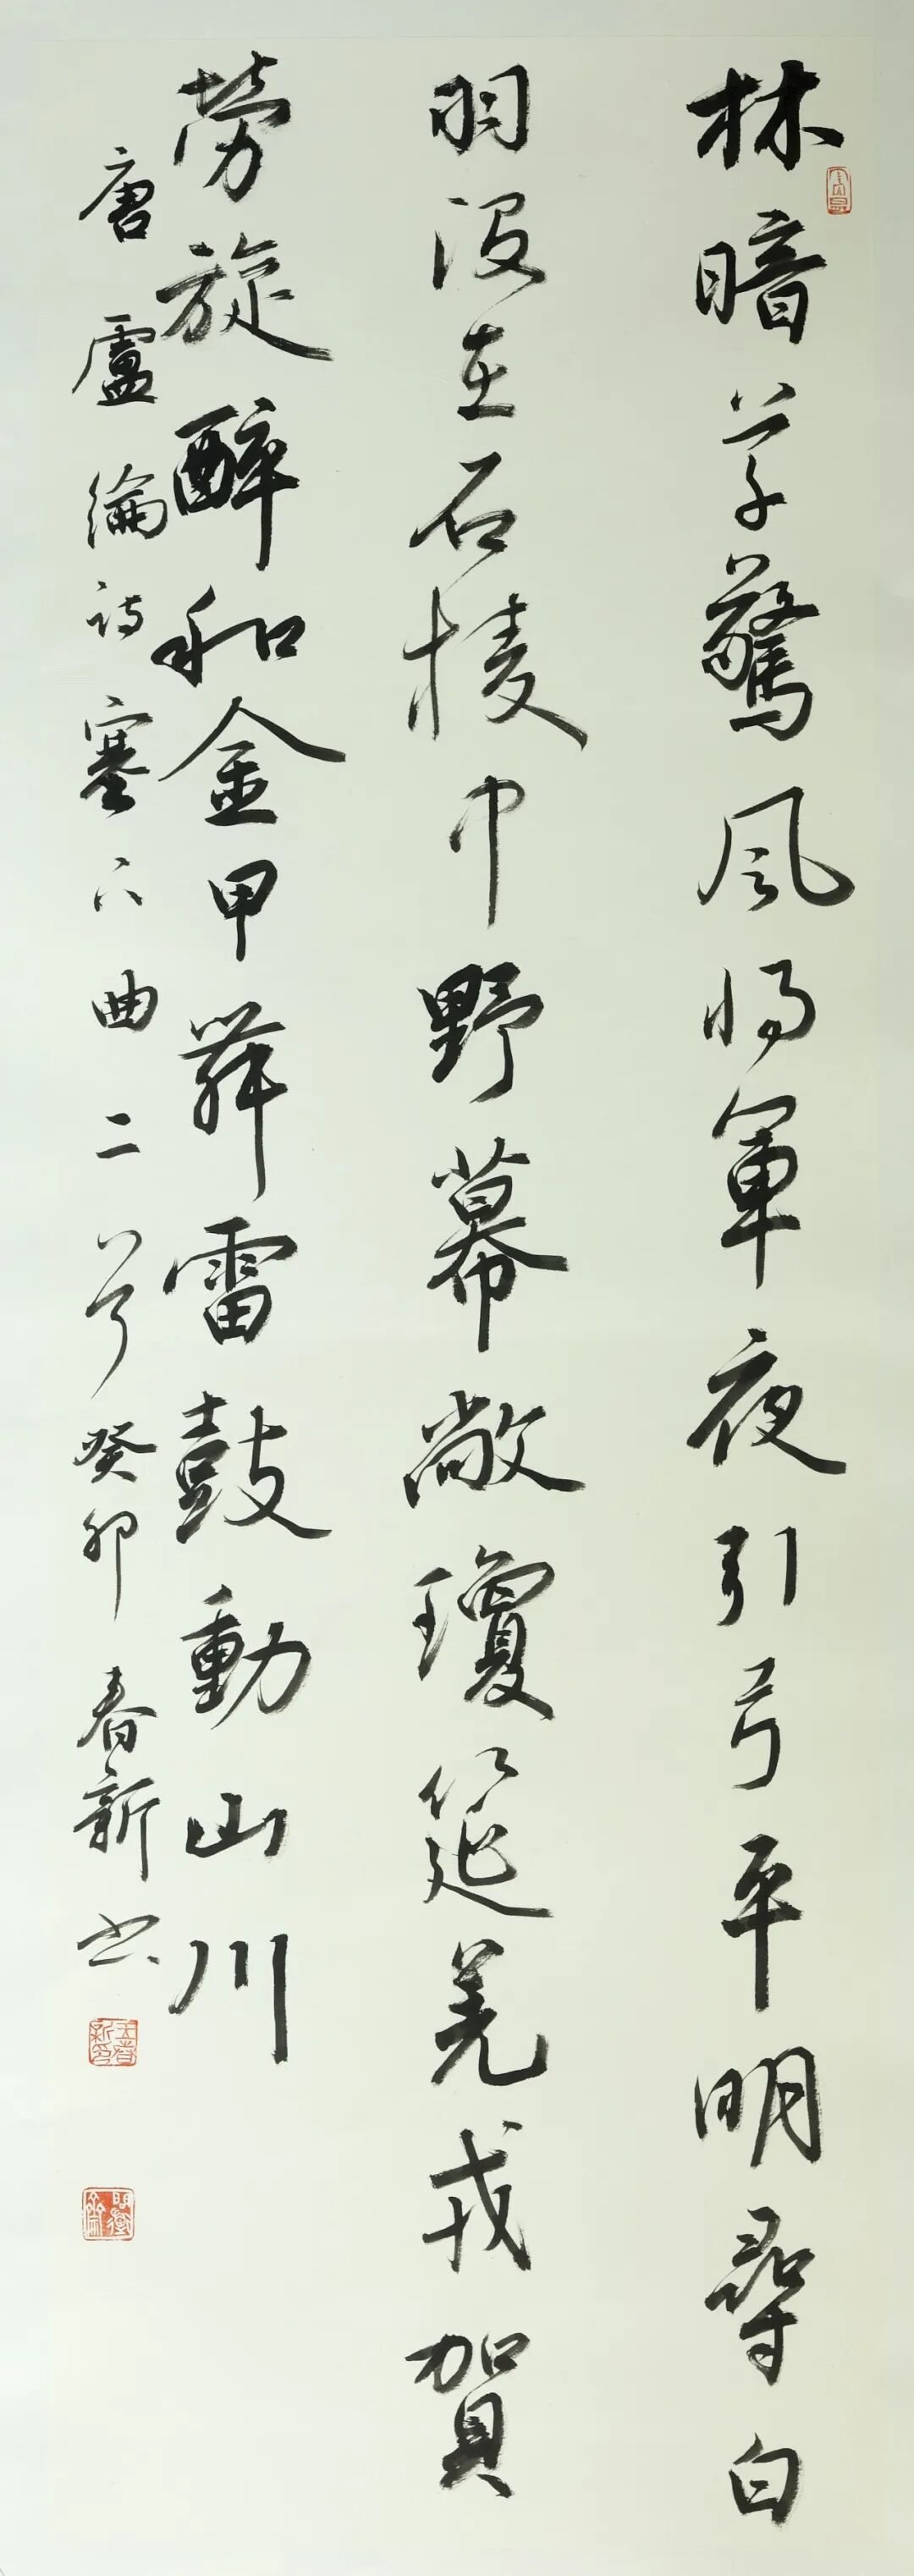 林暗草驚風將軍夜引弓平明尋白
羽没在石棱中野幕敞瓊筵羌戎賀
勞旋醉和金甲舞雷鼓動山川
唐盧綸詩塞下曲二首癸卯春新书